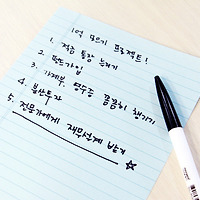 1억 모으기 프로젝트!
1. 적금 통장 늘리기
2. 펀드가입
3. 가계부, 영수증 꼼꼼히 챙기기
4. 분산투자
5. 전문가에게 재무설계 받기